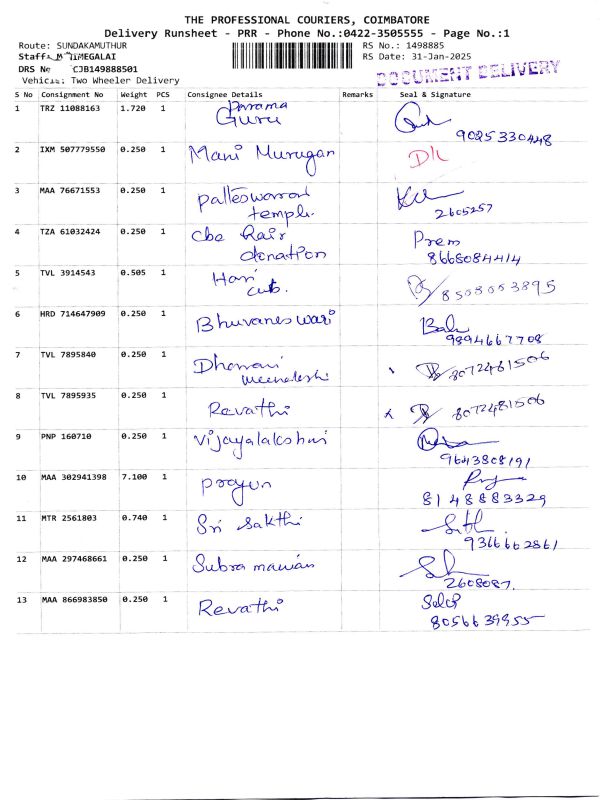 THE PROFESSIONAL COURIERS, COIMBATORE
Delivery Runsheet - PRR - Phone No.:0422-3505555 - Page No.:1
Route: SUNDAKAMUTHUR RS No.: 1498885
Staff: MEGALAI RS Date: 31-Jan-2025
DRS No CJB149888501 DOCUMENT DELIVERY
Vehicle: Two Wheeler Delivery
S No Consignment No Weight PCS Consignee Details Remarks Seal & Signature
1 TRZ 11088163 1.720 1 Guru 9025330448
2 IXM 507779550 0.250 1 Mani Murugan
3 MAA 76671553 0.250 1 temple 2605257
4 TZA 61032424 0.250 1 Cbe Prem
donation 8668084414
5 TVL 3914543 0.505 1 Hari 8508053895
6 HRD 714647909 0.250 1 Bhuvaneswari 9894667708
7 TVL 7895840 0.250 1 8072481506
8 TVL 7895935 0.250 1 Revathi 8072481506
9 PNP 160710 0.250 1 Vijayalakshmi 9643808191
10 MAA 302941398 7.100 1 8148883329
11 MTR 2561803 0.740 1 Sri Sakthi 9366662861
12 MAA 297468661 0.250 1 2608087
13 MAA 866983850 0.250 1 Revathi 8056639955